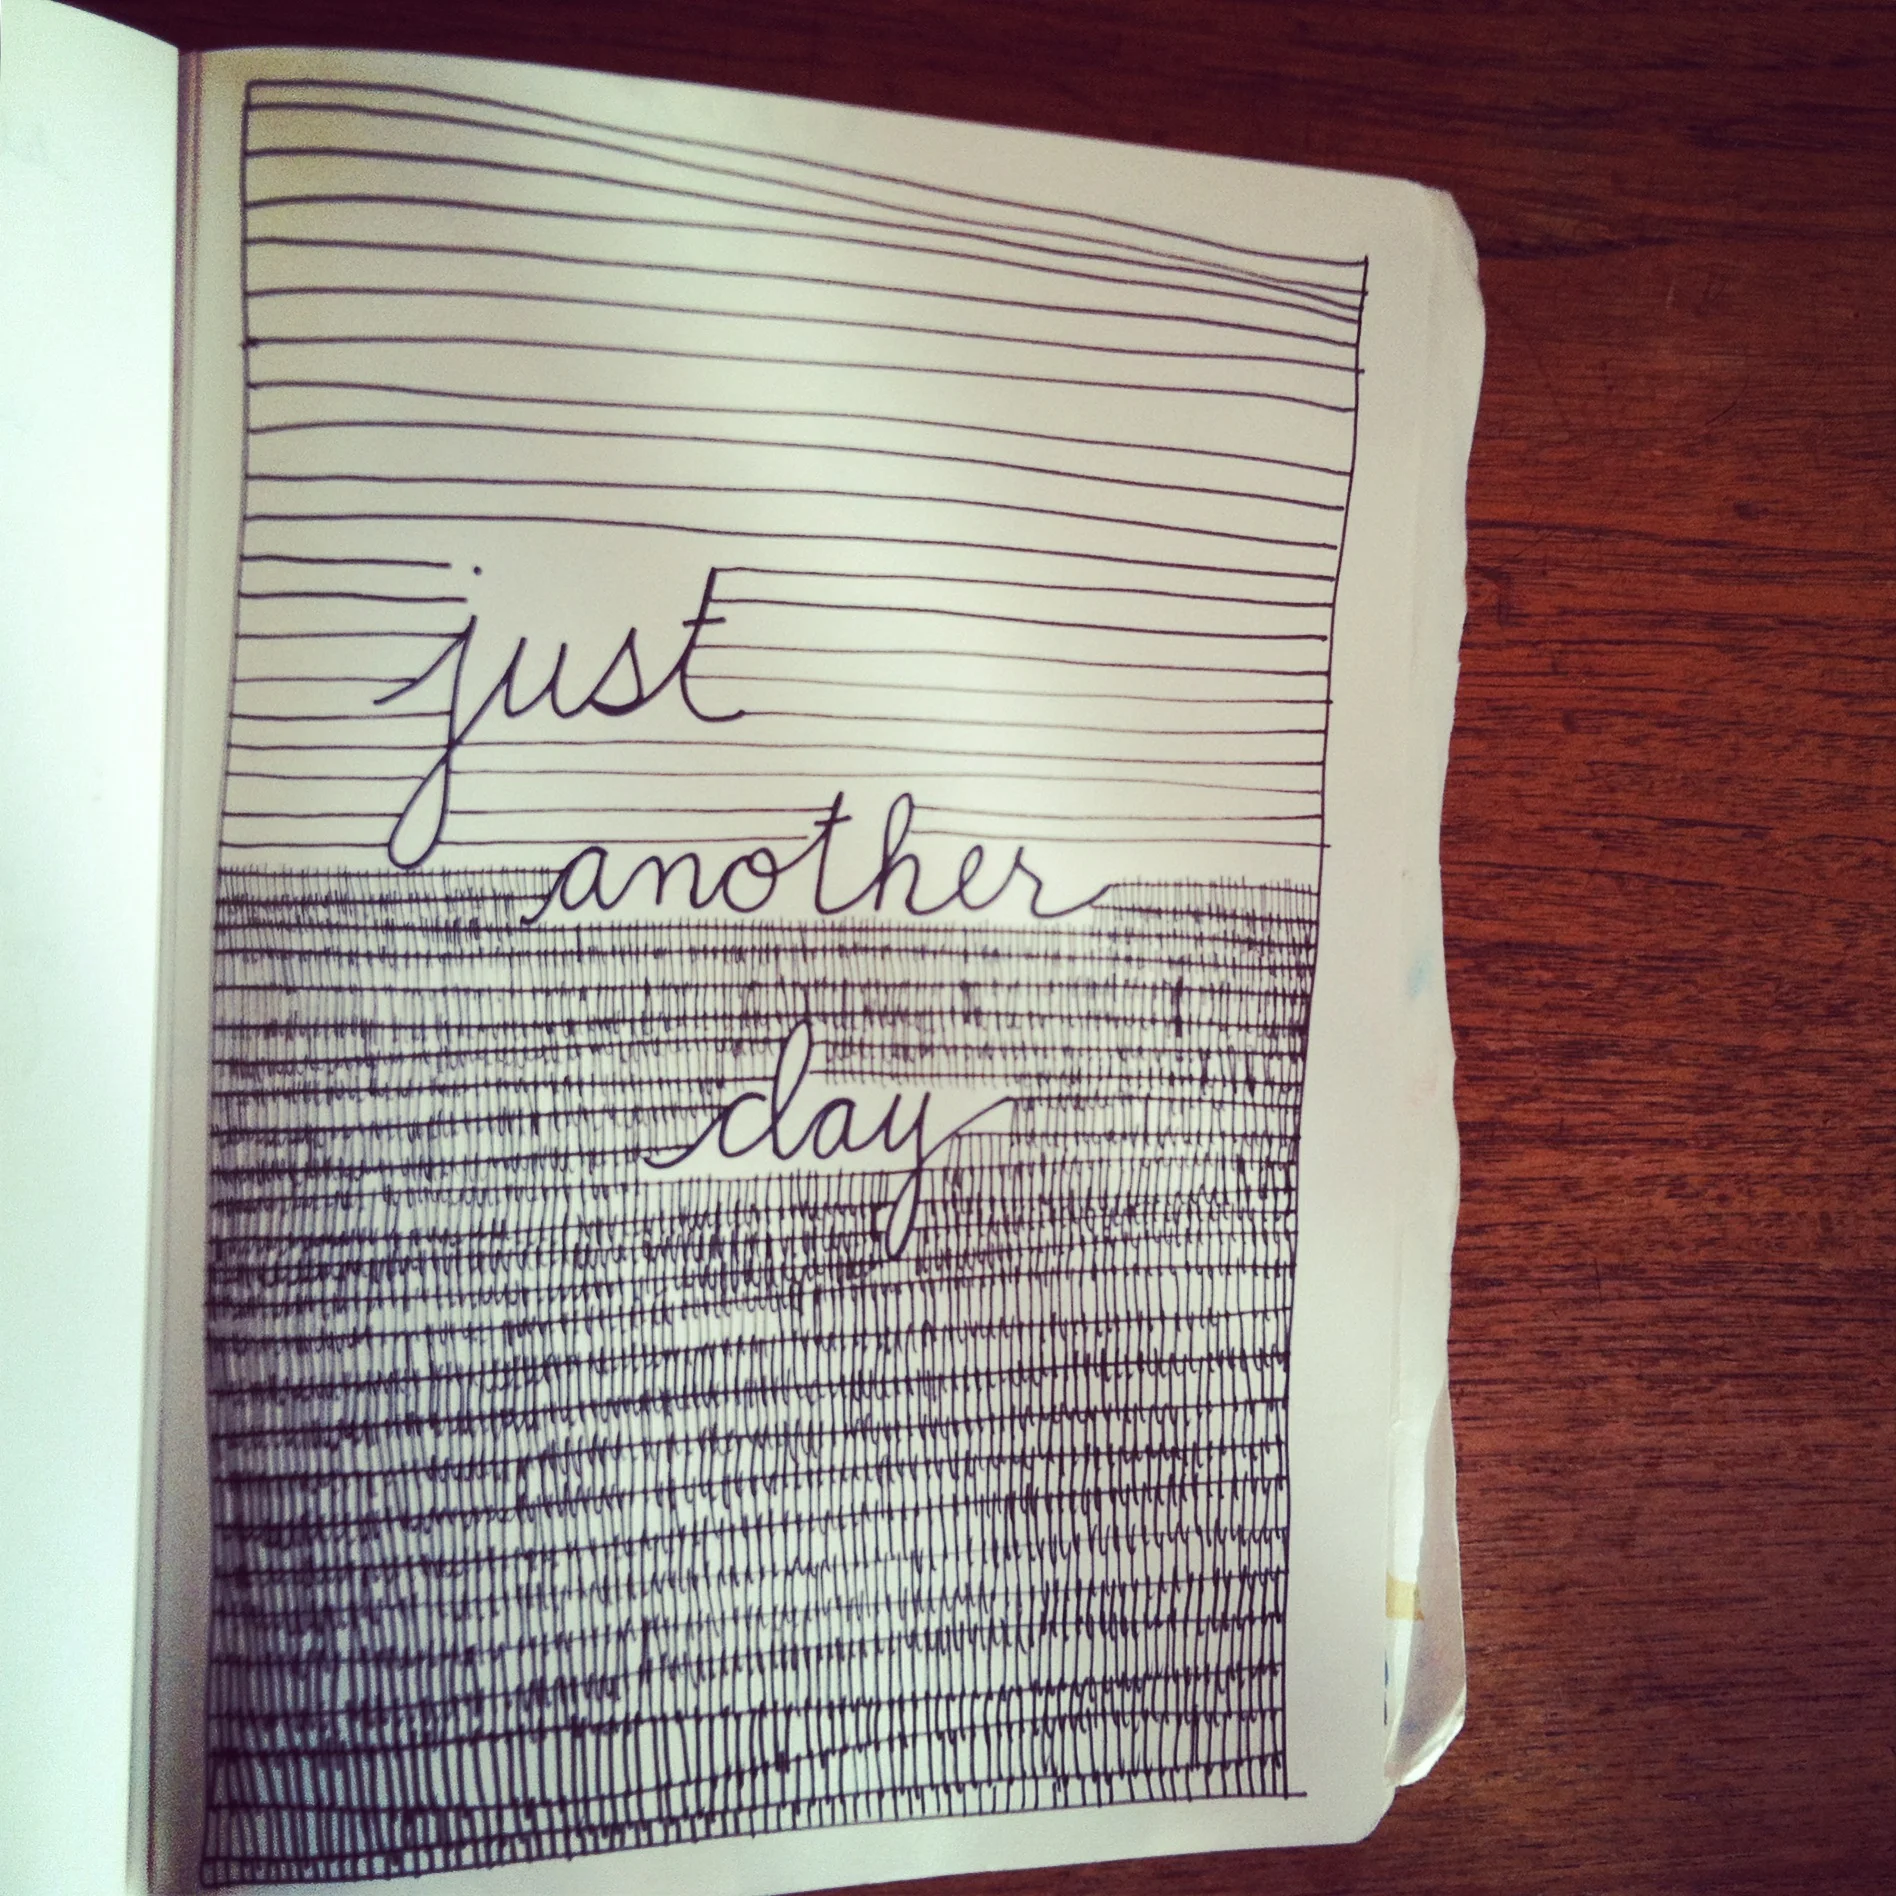 just
another
day